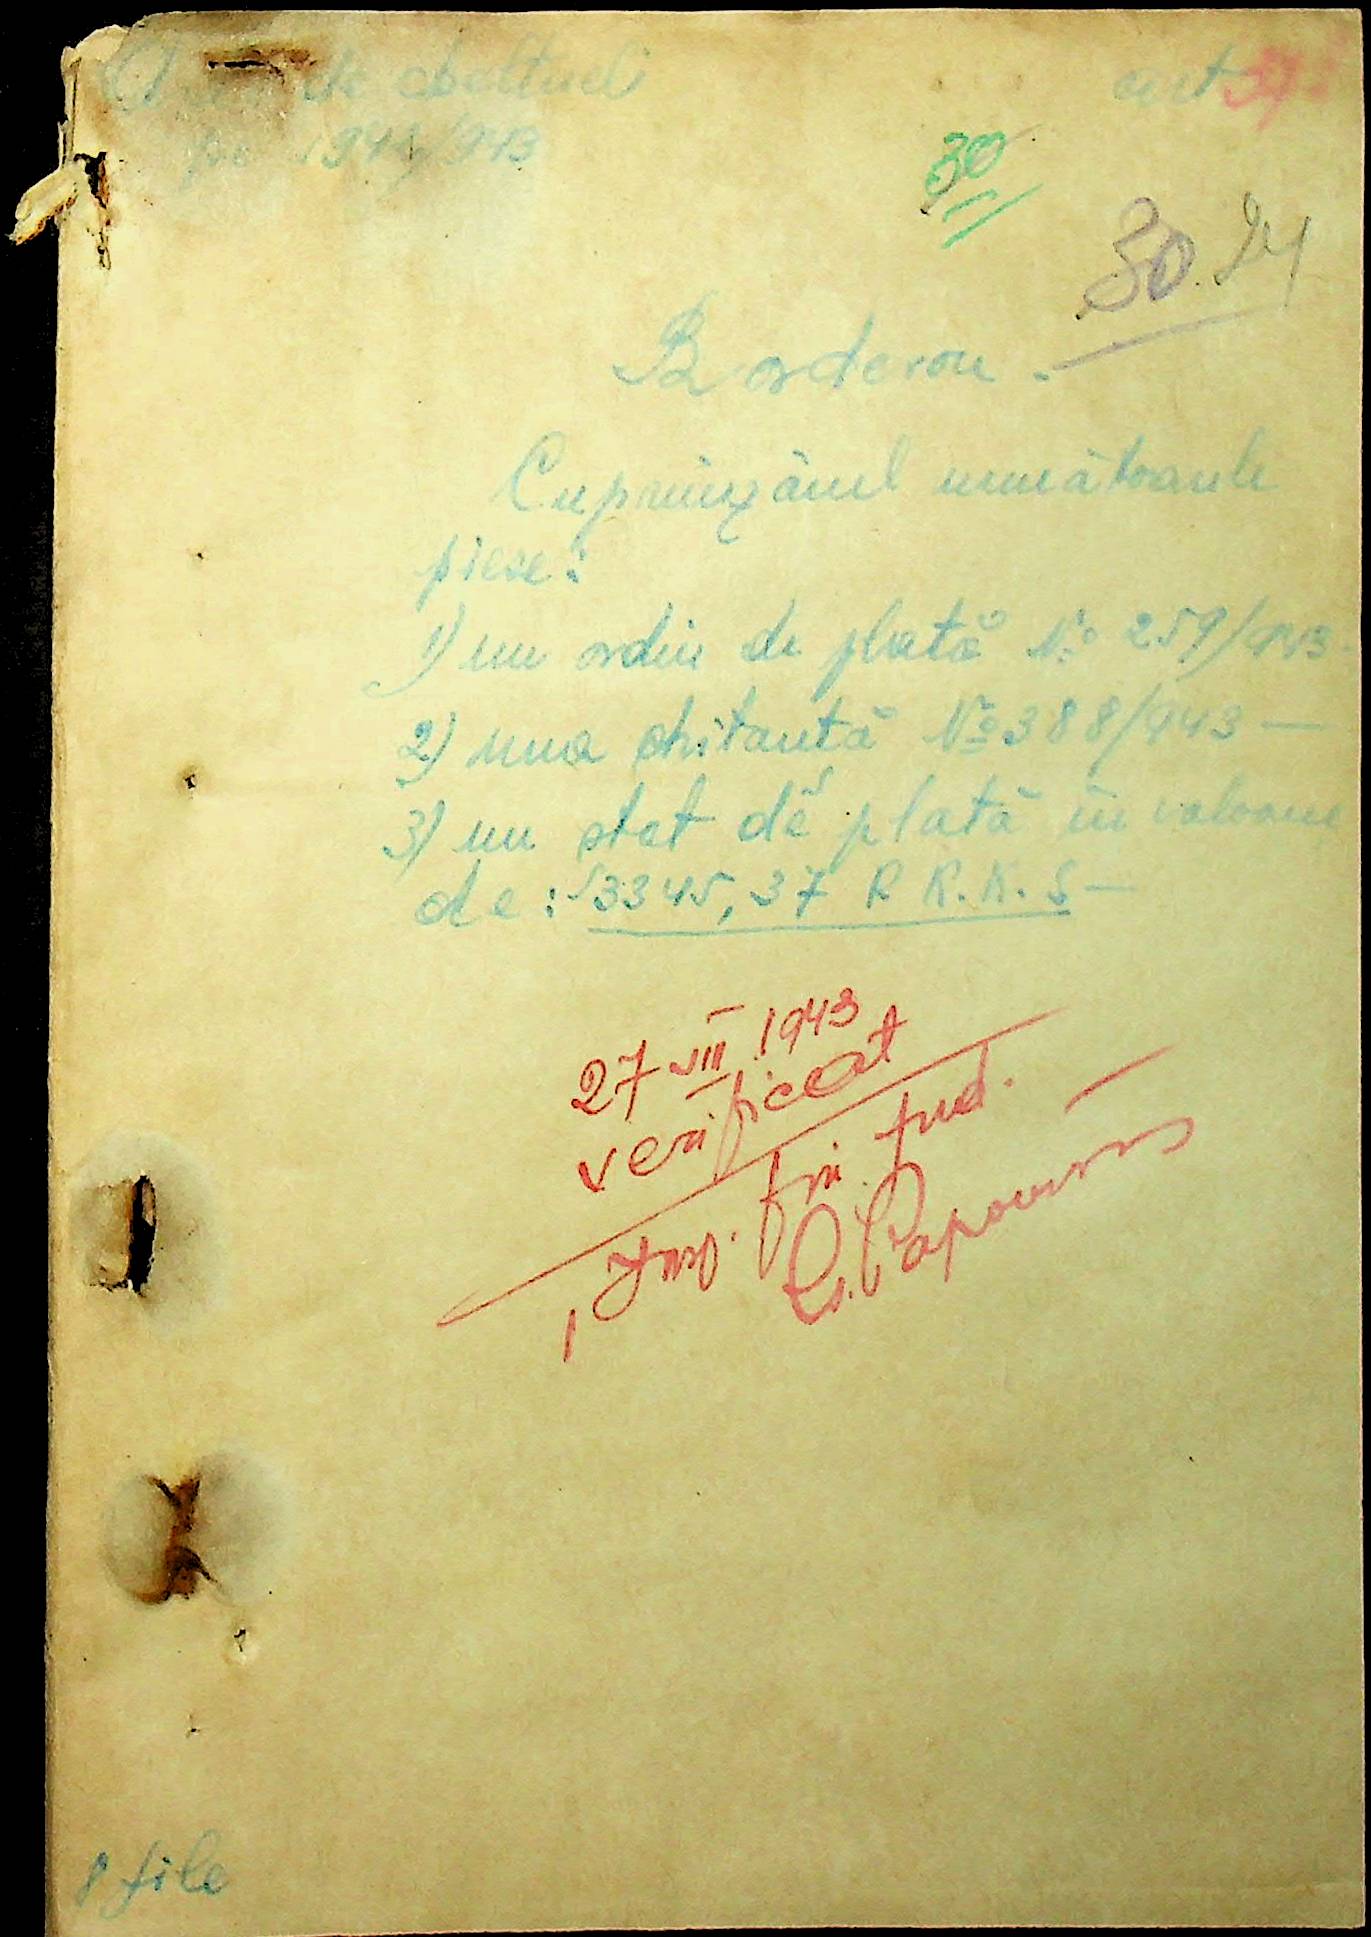 de cheltueli
art
1942/943
30
30. 24
Borderou.
Cuprinzând următoarele
piese:
1) un ordin de plată № 259/943.
2) una chitantă № 388/943 —
3) un stat de plată în valoare
de: 3345,37 R.K.K.S —
27 VIII 1943
verificat
Insp. fin. jud.
8 file